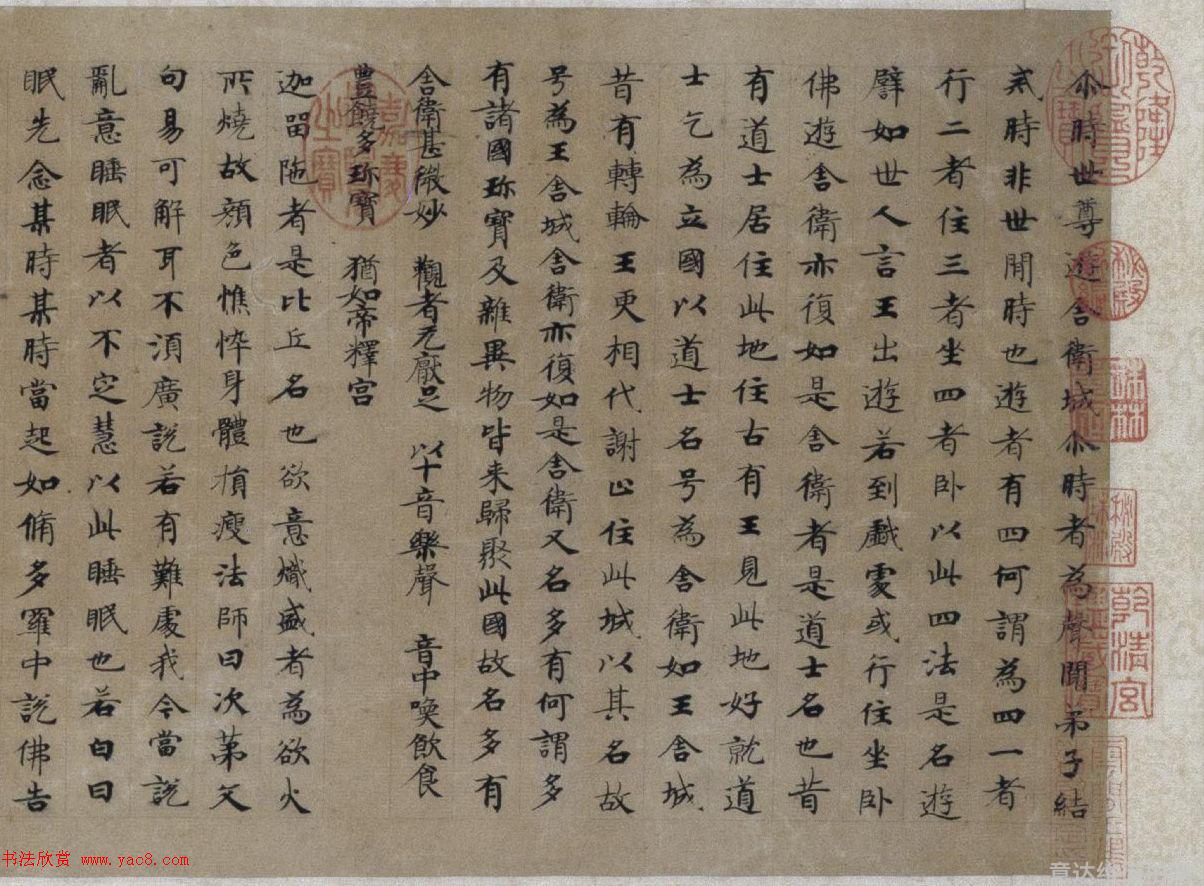 尒時世尊遊舍衛城尒時者為聲聞弟子結
戒時非世間時也遊者有四何謂為四一者
行二者住三者坐四者卧以此四法是名遊
譬如世人言王出遊若到戲處或行住坐卧
佛遊舍衛亦復如是舍衛者是道士名也昔
有道士居住此地住古有王見此地好就道
士乞為立國以道士名号為舍衛如王舍城
昔有轉輪王更相代謝止住此城以其名故
号為王舍城舍衛亦復如是舍衛又名多有何謂多
有諸國珎寶及雜異物皆来歸聚此國故名多有
舍衛甚微妙 觀者无厭足 以十音樂聲 音中喚飲食
豊饒多珎寶 猶如帝釋宮
迦留陁者是比丘名也欲意熾盛者為欲火
所燒故顔色憔悴身體損瘦法師曰次苐文
句易可解耳不湏廣說若有難處我今當說
亂意睡眠者以不定慧以此睡眠也若白日
眠先念某時某時當起如脩多羅中說佛告
书法欣赏 www.yac8.com